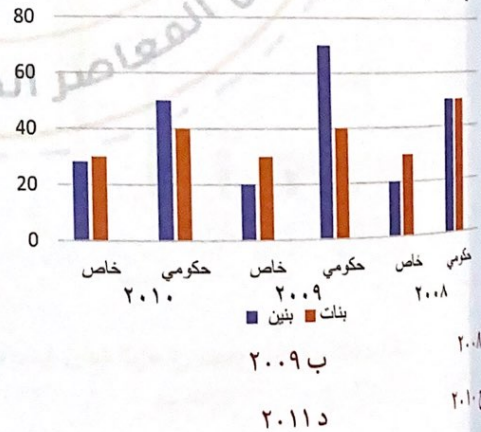 المعاصر
80
60
40
20
0
حكومي خاص حكومي خاص حكومي خاص
٢٠٠٨ ٢٠٠٩ ٢٠١٠
بنات بنين
ب ٢٠٠٩
د ٢٠١١